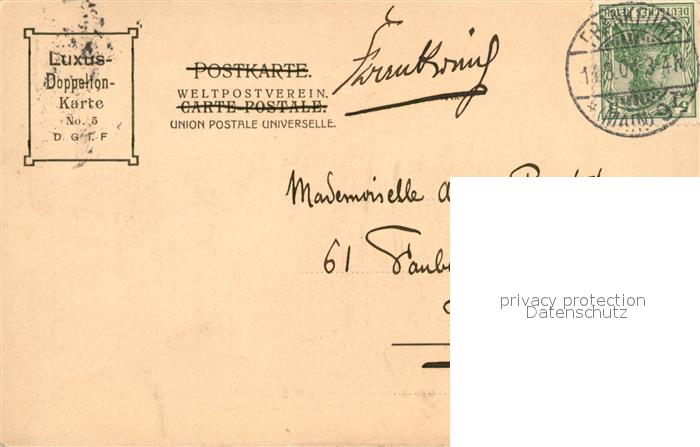 Luxus-
Doppelton-
Karte
No. 5
D. G. I. F
POSTKARTE.
WELTPOSTVEREIN.
CARTE POSTALE.
UNION POSTALE UNIVERSELLE.
DEUTSCHES REICH
FRANKFURT
3-4N
(MAIN)
5
Mademoiselle
61
privacy protection
Datenschutz